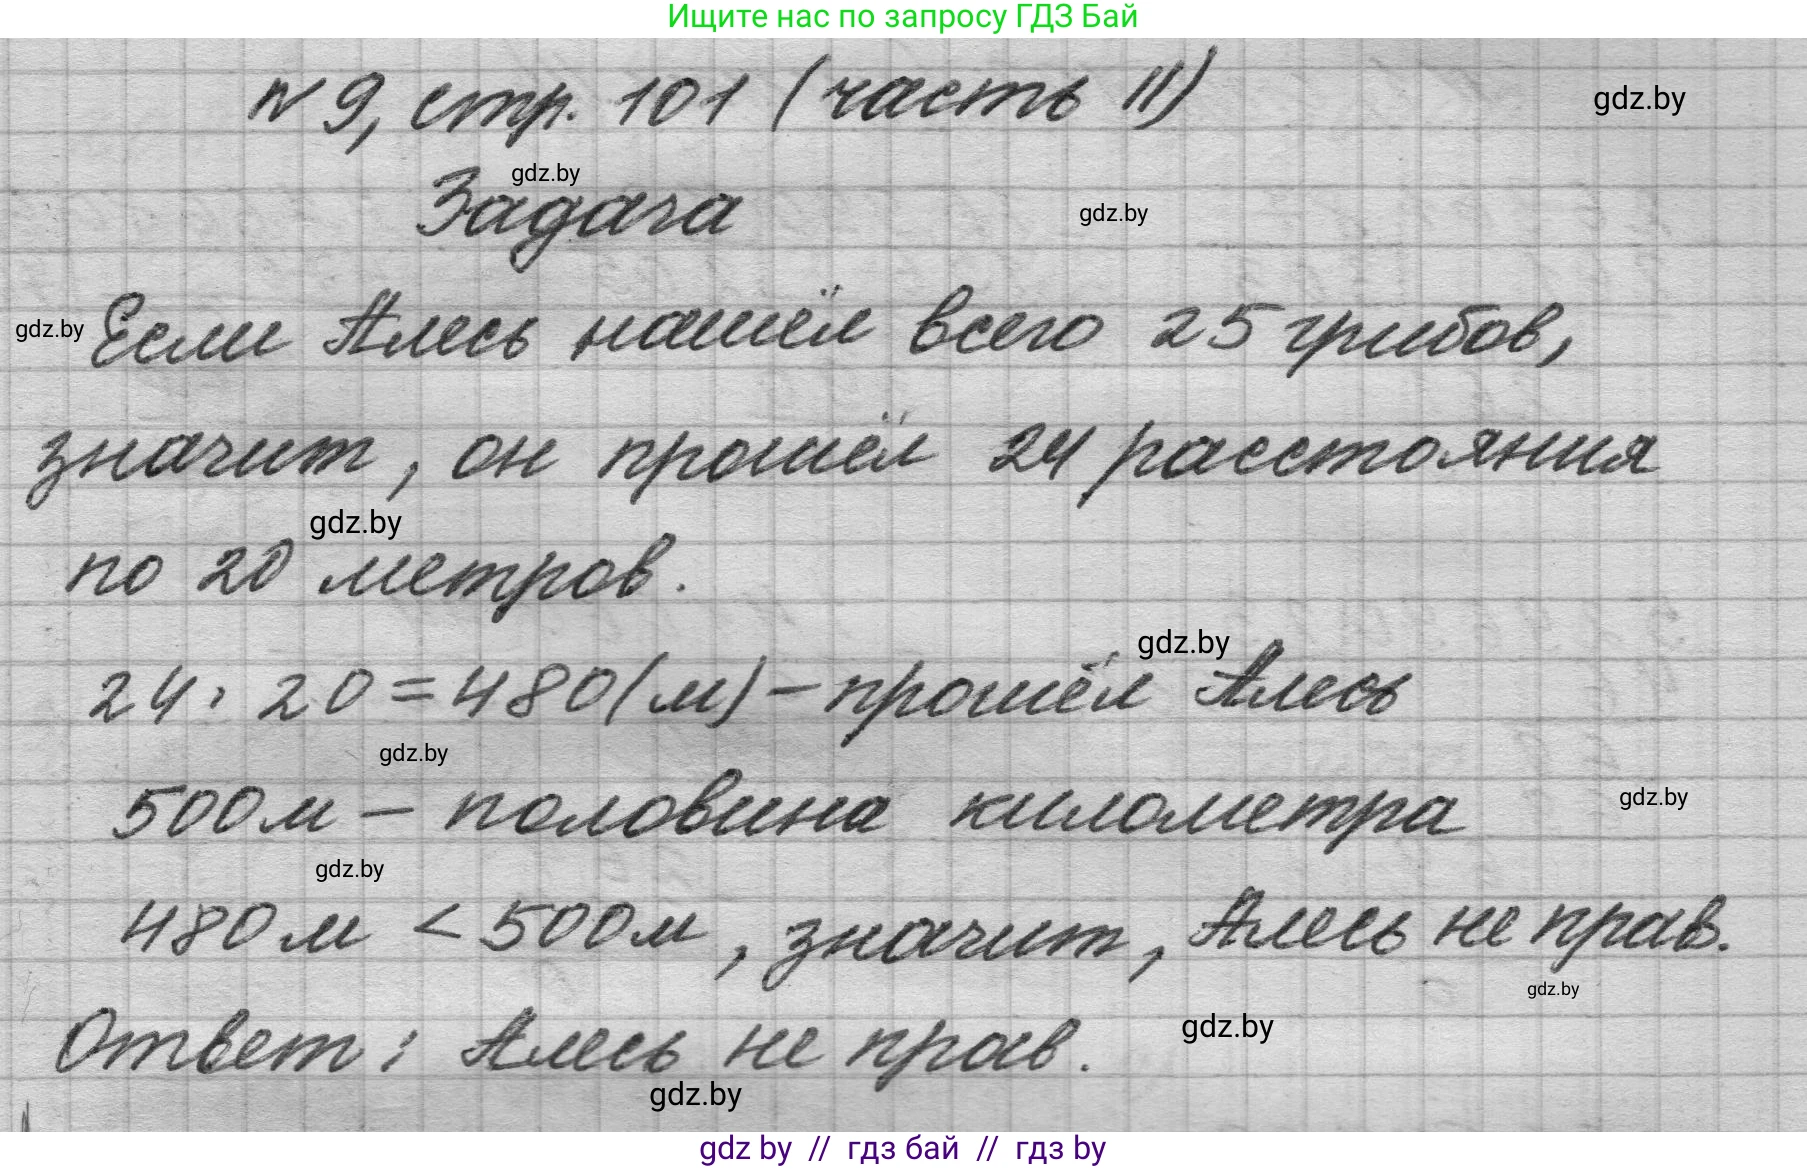 Ищите нас по запросу ГДЗ Бай
№ 9, стр. 101 (часть II)
gdz.by
gdz.by
Задача
gdz.by
gdz.by
Если Алесь нашёл всего 25 грибов,
значит, он прошёл 24 расстояния
gdz.by
по 20 метров.
gdz.by
24 · 20 = 480 (м) – прошёл Алесь
gdz.by
500 м – половина километра
gdz.by
gdz.by
480 м < 500 м, значит, Алесь не прав.
gdz.by
Ответ: Алесь не прав.
gdz.by
gdz.by
gdz by // гдз бай // гдз by